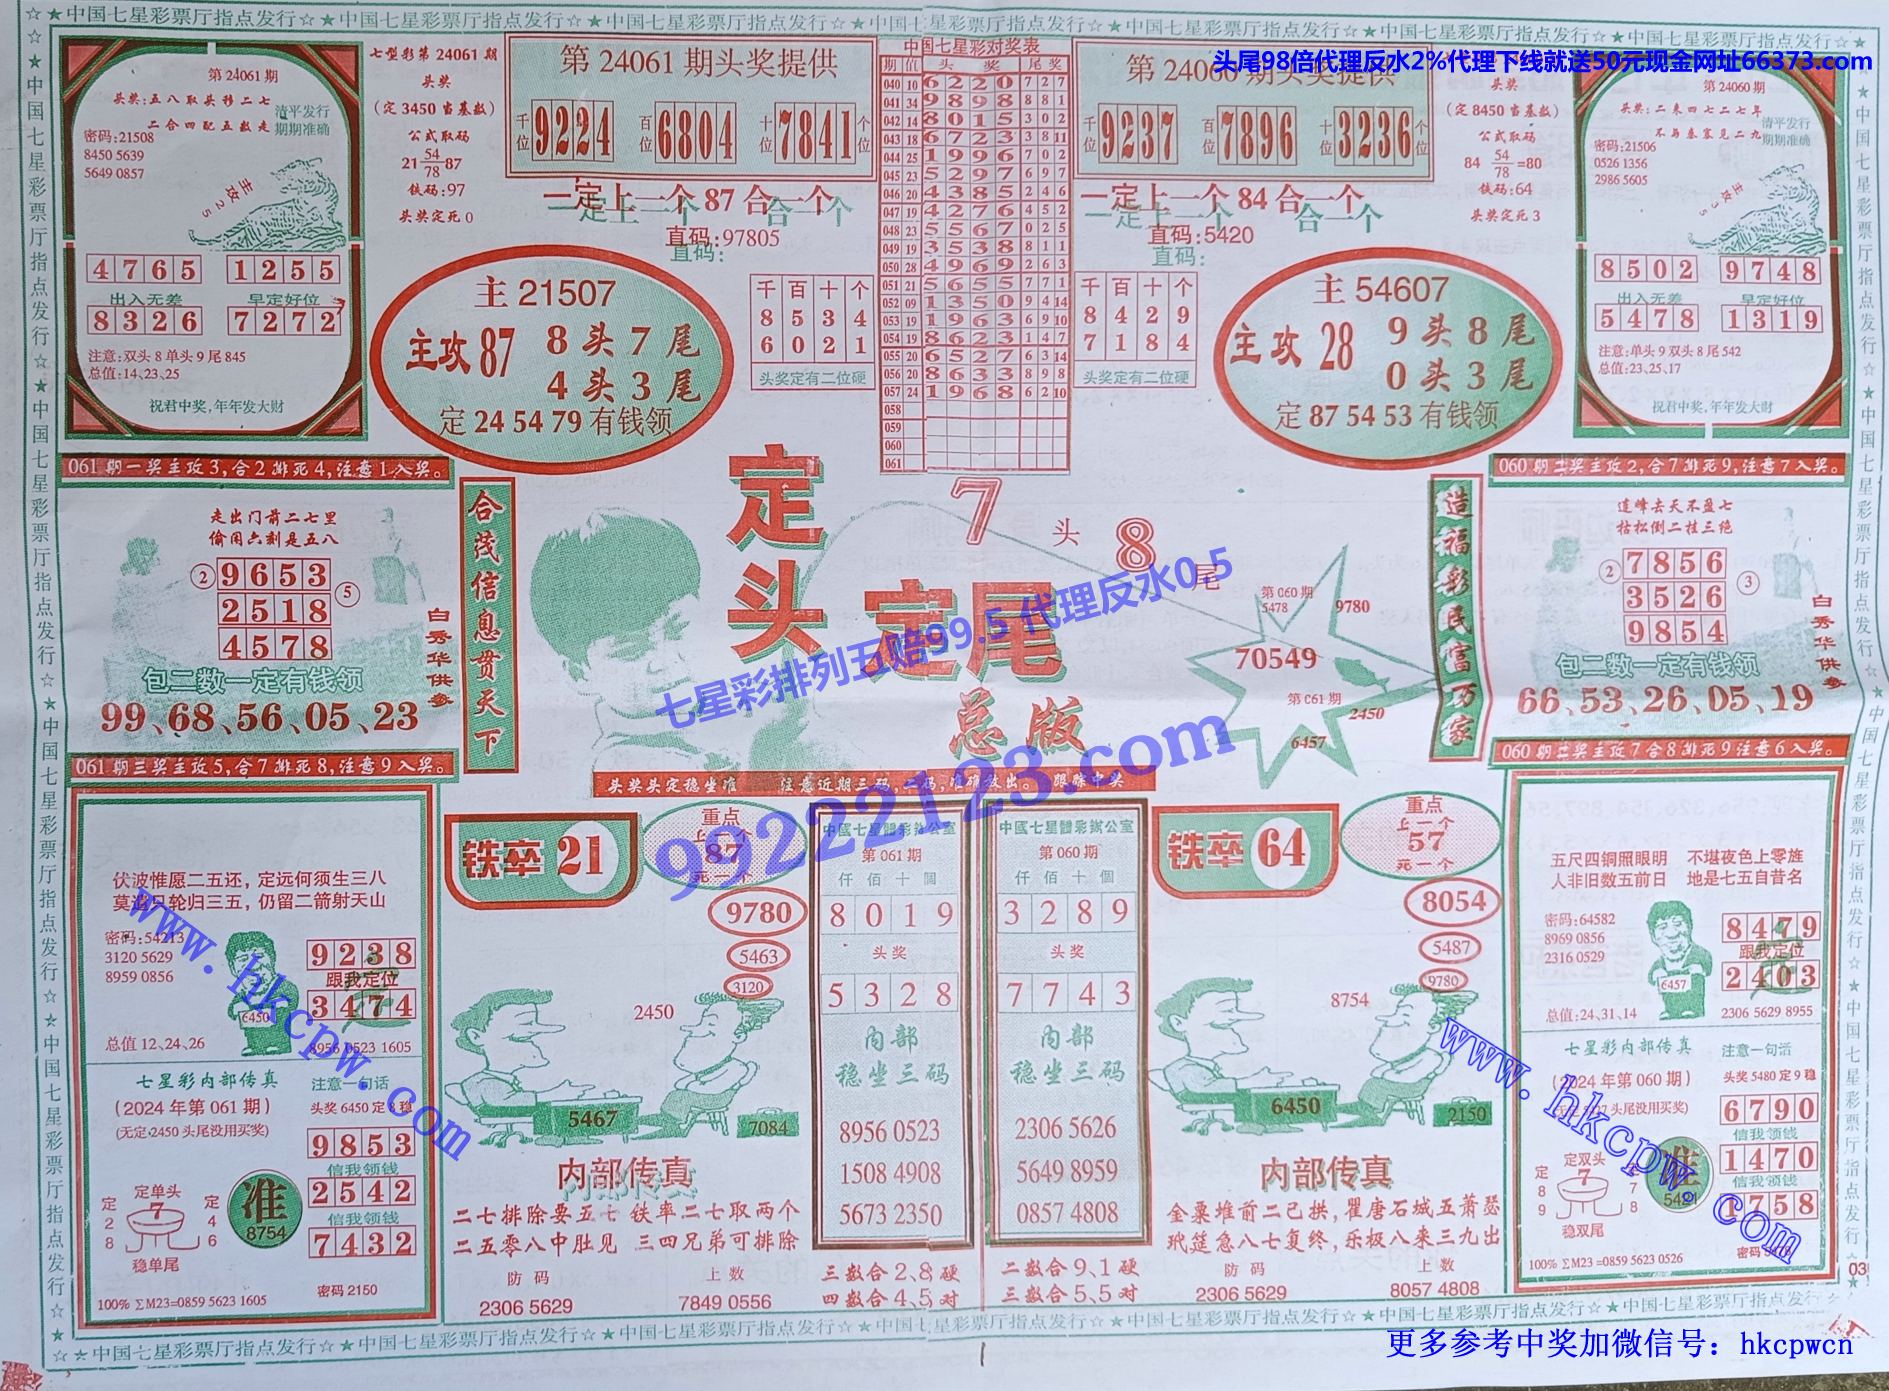 ☆★中国七星彩票厅指点发行☆★中国七星彩票厅指点发行☆★中国七星彩票厅指点发行☆★中国七星彩票厅指点发行☆★中国七星彩票厅指点发行☆★中国七星彩票厅指点发行☆★中国七星彩票厅指点发行☆★
头尾98倍代理反水2%代理下线就送50元现金网址66373.com
第 24061 期
头奖:五八取头移二七
二合四配五数走
清平发行
期期准确
密码:21508
8450 5639
5649 0857
主攻25
4765 1255
出入无差 早定好位
8326 7272
注意:双头 8 单头 9 尾 845
总值:14、23、25
祝君中奖,年年发大财
七型彩第 24061 期
头奖
(定 3450 当基数)
公式取码
21 54/78 87
铁码:97
头奖定死 0
第 24061 期头奖提供
千位 9224 百位 6804 十位 7841 个位
一定上一个 87 合一个
直码:97805
直码:
主 21507
主攻 87 8 头 7 尾
4 头 3 尾
定 24 54 79 有钱领
千百十个
8 5 3 4
6 0 2 1
头奖定有二位硬
中国七星彩对奖表
期 值 头奖 尾奖
040 10 6220 7 2 7
041 34 9898 8 8 1
042 14 8015 3 0 2
043 18 6723 3 8 11
044 25 1996 7 0 2
045 23 5297 6 9 7
046 20 4385 2 4 6
047 19 4276 4 5 2
048 23 5567 0 2 5
049 19 3538 8 1 1
050 28 4969 2 6 3
051 21 5655 7 7 1
052 09 1350 9 4 14
053 19 1963 6 9 10
054 19 8623 1 4 7
055 20 6527 6 3 14
056 20 8633 8 9 8
057 24 1968 6 2 10
058
059
060
061
第 24060 期头奖提供
千位 9237 百位 7896 十位 3236 个位
一定上一个 84 合一个
直码:5420
直码:
千百十个
8 4 2 9
7 1 8 4
头奖定有二位硬
主 54607
主攻 28 9 头 8 尾
0 头 3 尾
定 87 54 53 有钱领
头奖
(定 8450 当基数)
公式取码
84 54/78 =80
铁码:64
头奖定死 3
第 24060 期
头奖:二来四七二七年
不易春寒见二九
清平发行
期期准确
密码:21506
0526 1356
2986 5605
主攻35
8502 9748
出入无差 早定好位
5478 1319
注意:单头 9 双头 8 尾 542
总值:23、25、17
祝君中奖,年年发大财
061 期一奖主攻3,合2排死4,注意1入奖。
走出门前二七里
偷闲六刻是五八
② 9653
2518 ⑤
4578
包二数一定有钱领
99、68、56、05、23
白秀华供参
合茂信息贯天下
定头
定尾
总版
7 头 8 尾
第 060 期
5478 9780
70549
第 061 期
2450
6457
造福彩民富万家
060 期二奖主攻2,合7排死9,注意7入奖。
道峰去天不盈七
枯松倒二挂三绝
② 7856
3526 ③
9854
包二数一定有钱领
66、53、26、05、19
白秀华供参
七星彩排列五赔99.5 代理反水0.5
99222123.com
061 期三奖主攻5,合7排死8,注意9入奖。
伏波惟愿二五还,定远何须生三八
莫遣只轮归三五,仍留二箭射天山
密码:54213
3120 5629
8959 0856
6450
9238
跟我定位
3474
总值 12、24、26
8956 0523 1605
七星彩内部传真
(2024 年第 061 期)
(无定 2450 头尾没用买奖)
注意一句话
头奖 6450 定 稳
9853
信我领钱
2542
信我领钱
7432
定单头
定 2 8
7
定 4 6
稳单尾
准
8754
100% ∑M23=0859 5623 1605
密码 2150
www.hkcpw.com
头奖头定稳坐准 注意近期三码, 码,准确放出。 跟踪中奖
铁卒 21
重点
上一个
87
死一个
9780
5463
3120
2450
5467
7084
内部传真
二七排除要五七 铁率二七取两个
二五零八中肚见 三四兄弟可排除
防码 上数
2306 5629 7849 0556
中國七星體彩辦公室
第 061 期
仟佰十個
8019
头奖
5328
内部
稳坐三码
8956 0523
1508 4908
5673 2350
三数合 2、8 硬
四数合 4、5 对
中國七星體彩辦公室
第 060 期
仟佰十個
3289
头奖
7743
内部
稳坐三码
2306 5626
5649 8959
0857 4808
二数合 9、1 硬
三数合 5、5 对
铁卒 64
重点
上一个
57
死一个
8054
5487
9780
8754
6450
2150
内部传真
金粟堆前二已拱,瞿唐石城五萧瑟
玳筵急八七复终,乐极八来三九出
防码 上数
2306 5629 8057 4808
060 期三奖主攻7合8排死9注意6入奖。
五尺四铜照眼明 不堪夜色上零旌
人非旧数五前日 地是七五自昔名
密码:64582
8969 0856
2316 0529
6457
8479
跟我定位
2403
总值:24、31、14
2306 5629 8955
七星彩内部传真
(2024 年第 060 期)
头尾没用买奖)
注意一句话
头奖 5480 定 9 稳
6790
信我领钱
1470
信我领钱
1758
定双头
定 8 9
7
稳双尾
准
5421
100% ∑M23=0859 5623 0526
密码
www.hkcpw.com
03
☆★中国七星彩票厅指点发行☆★中国七星彩票厅指点发行☆★中国七星彩票厅指点发行☆★中国七星彩票厅指点发行☆★中国七星彩票厅指点发行☆★中国七星彩票厅指点发行☆★中国七星彩票厅指点发行☆
更多参考中奖加微信号：hkcpwcn